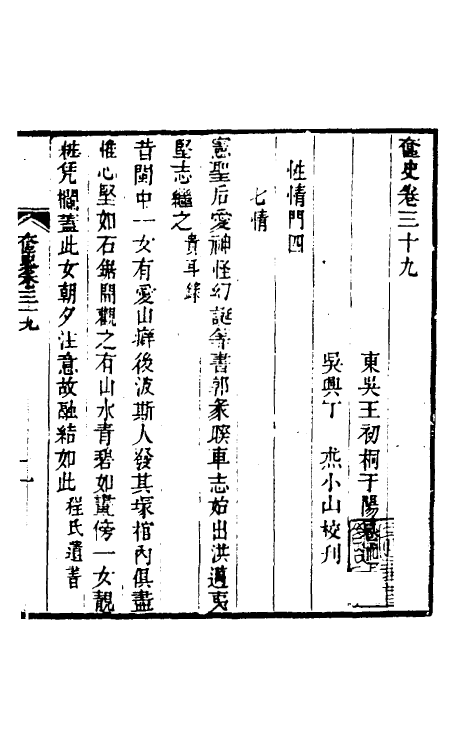 奩史卷三十九
東吳王初桐于陽
吳興丁 小山校刋
性情門四
七情
憲聖后愛神怪幻誕等書郭彖睽車志始出洪邁夷
堅志繼之貴耳錄
昔閩中一女有愛山癖後波斯人發其塚棺內俱盡
惟心堅如石鋸開觀之有山水青碧如畫傍一女靚
粧凭欄蓋此女朝夕注意故融結如此程氏遺書
奩史卷三十九
一